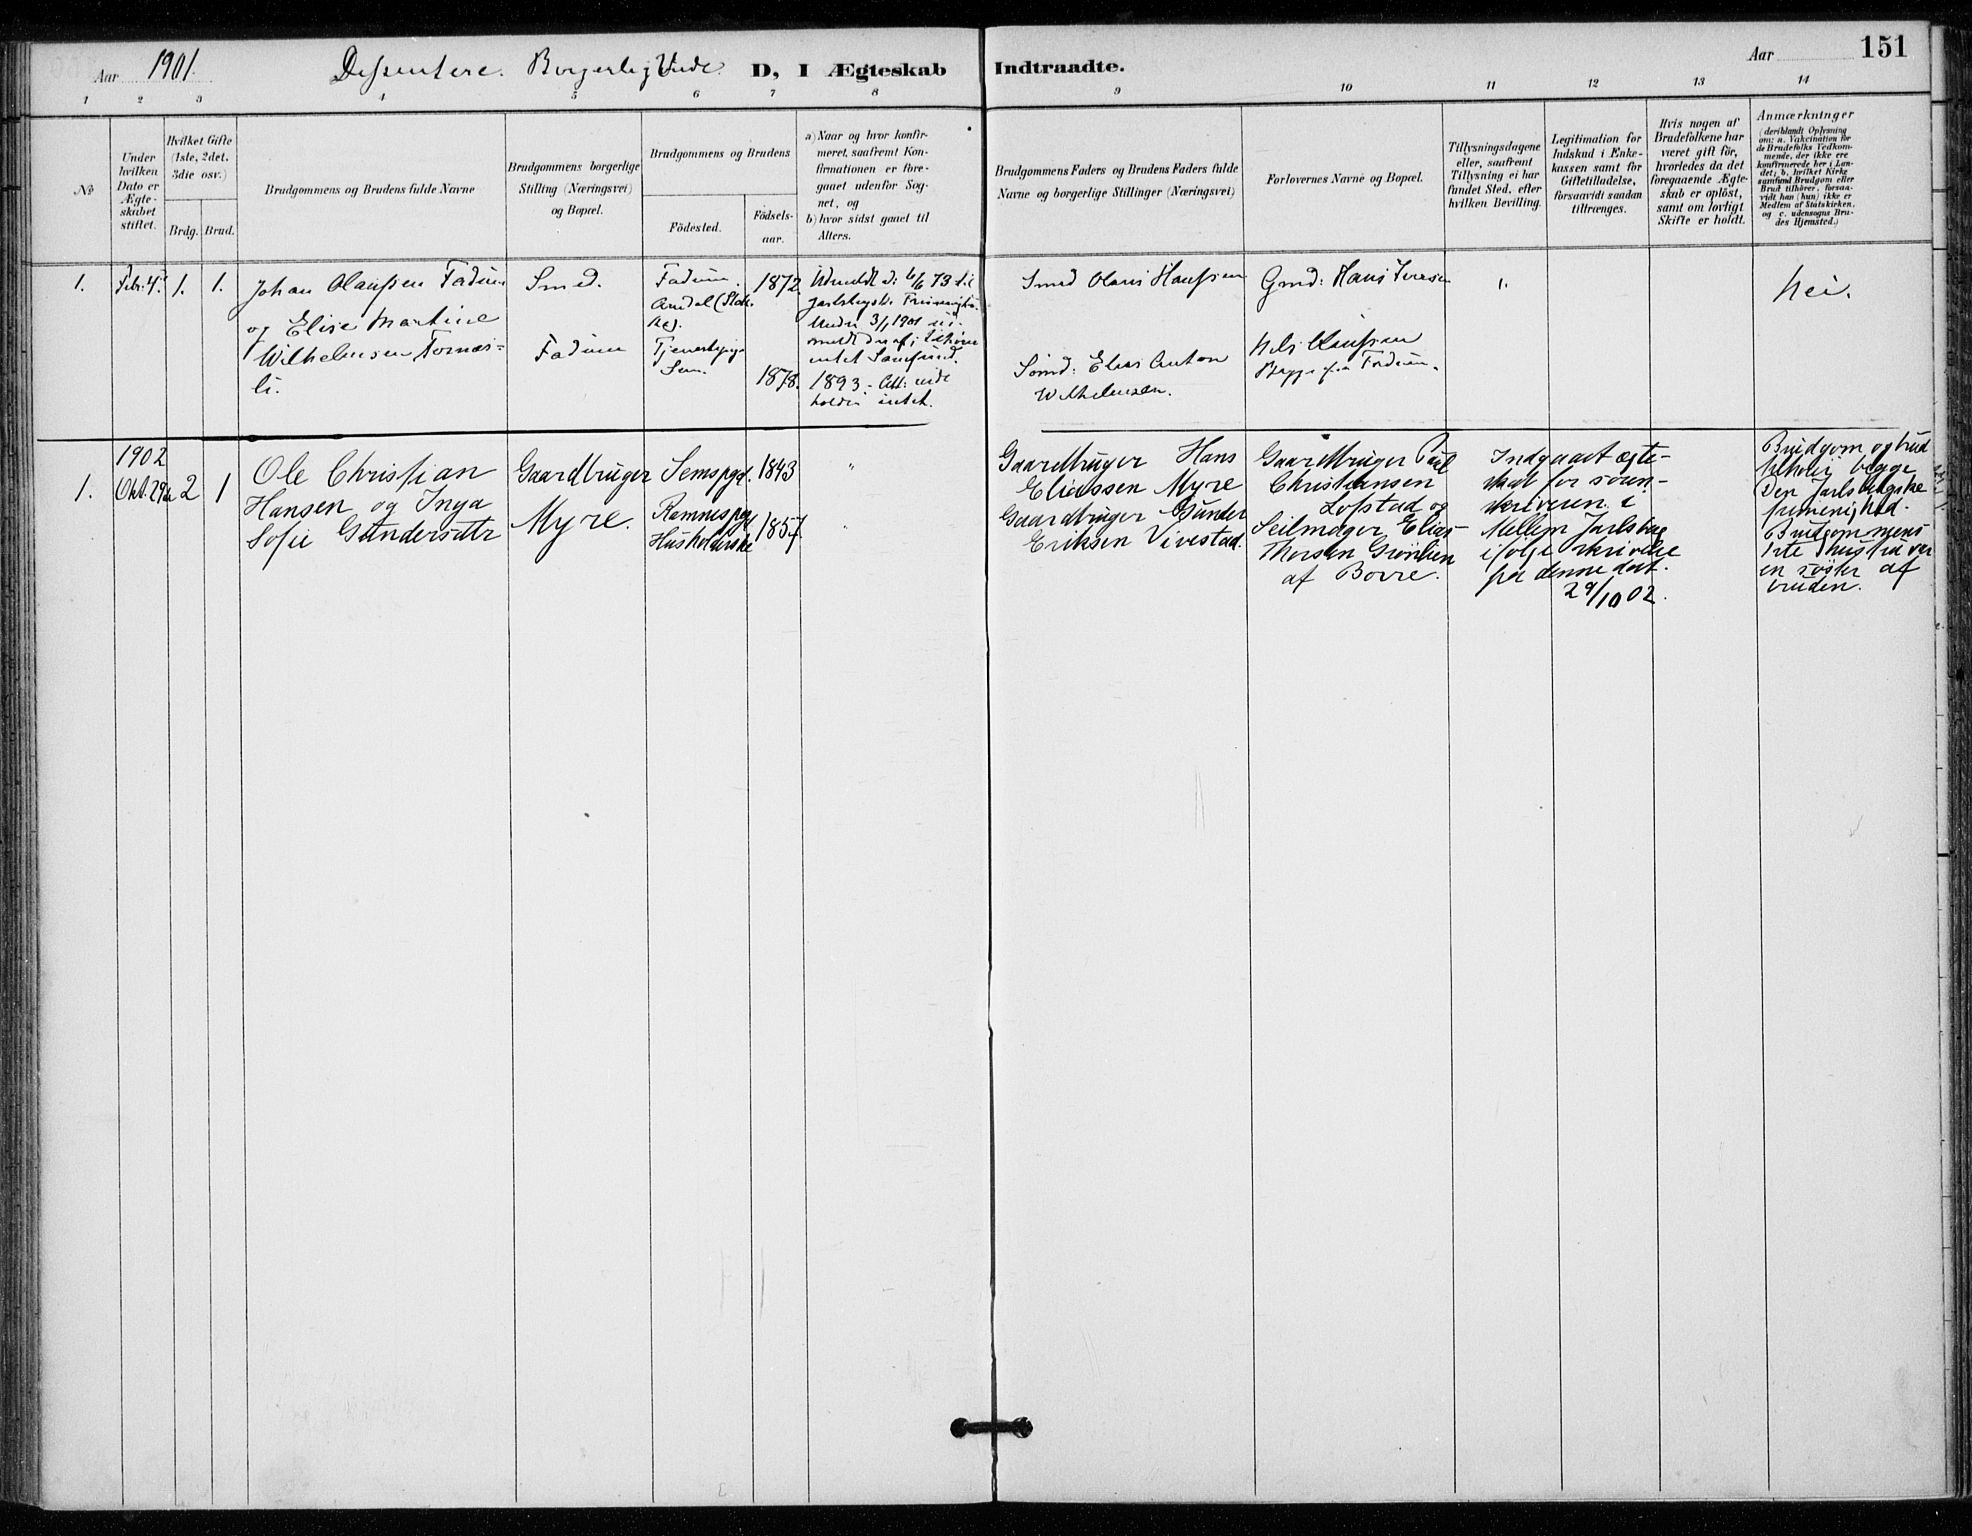 Aar 1901. Dissentere. Borgerlig Viede. D, I Ægteskab Indtraadte. Aar 151
1 2 3 4 5 6 7 8 9 10 11 12 13 14
No
Under hvilken Dato er Ægteskabet stiftet.
Hvilket Gifte (1ste, 2det, 3die osv.)
Brdg. Brud.
Brudgommens og Brudens fulde Navne
Brudgommens borgerlige Stilling (Næringsvei) og Bopæl.
Brudgommens og Brudens
Födested.
Födselsaar.
a) Naar og hvor konfirmeret, saafremt Konfirmationen er foregaaet udenfor Sognet, og
b) hvor sidst gaaet til Alters.
Brudgommens Faders og Brudens Faders fulde Navne og borgerlige Stillinger (Næringsvei)
Forlovernes Navne og Bopæl.
Tillysningsdagene eller, saafremt Tillysning ei har fundet Sted, efter hvilken Bevilling.
Legitimation for Indskud i Enkekassen samt for Giftetilladelse, forsaavidt saadan tiltrænges.
Hvis nogen af Brudefolkene har været gift før, hvorledes da det foregaaende Ægteskab er oplöst, samt om lovligt Skifte er holdt.
Anmærkninger
(deriblandt Oplysning om: a. Vakcination for de Brudefolks Vedkommende, der ikke ere konfirmerede her i Landet; b. hvilket Kirkesamfund Brudgom eller Brud tilhörer, forsaavidt han (hun) ikke er Medlem af Statskirken, og c. udensogns Brudes Hjemsted.)
1.
Febr. 4.
1. 1.
Johan Olaussen Fadum
og Elise Martine
Wilhelmsen
Smed.
Fadum
Fadum.
Sem.
1872
1878.
1893
intet.
Smed Olaus Hanssen
Elias Anton
Wilhelmsen.
Gmd: Hans Iversen
Nils Olaussen
Begge fra Fadum.
Nei.
1902
1.
Okt. 29de
2 1
Ole Christian
Hansen og Inga
Sofie Gundersdtr
Gaardbruger
Myre.
Sems pgd.
Ramnes pgd
Husholderske
1843
1857
"
"
Gaardbruger Hans
Eliassen Myre
Gaardbruger Gunder
Eriksen Vivestad.
Gaardbruger Paul
Christiansen
Lofstad og
Seilmager Elias
Thorsen Grønlien
af Borre.
Indgaaet ægte-
skab for soren-
skriveren i
Mellem Jarlsberg
ifølge skrivelse
fra denne dat.
29/10 02.
Brudgom og brud
tilhører begge
Den Jarlsbergske
frimenighed.
Brudgommens
1ste hustru var
en søster af
bruden.